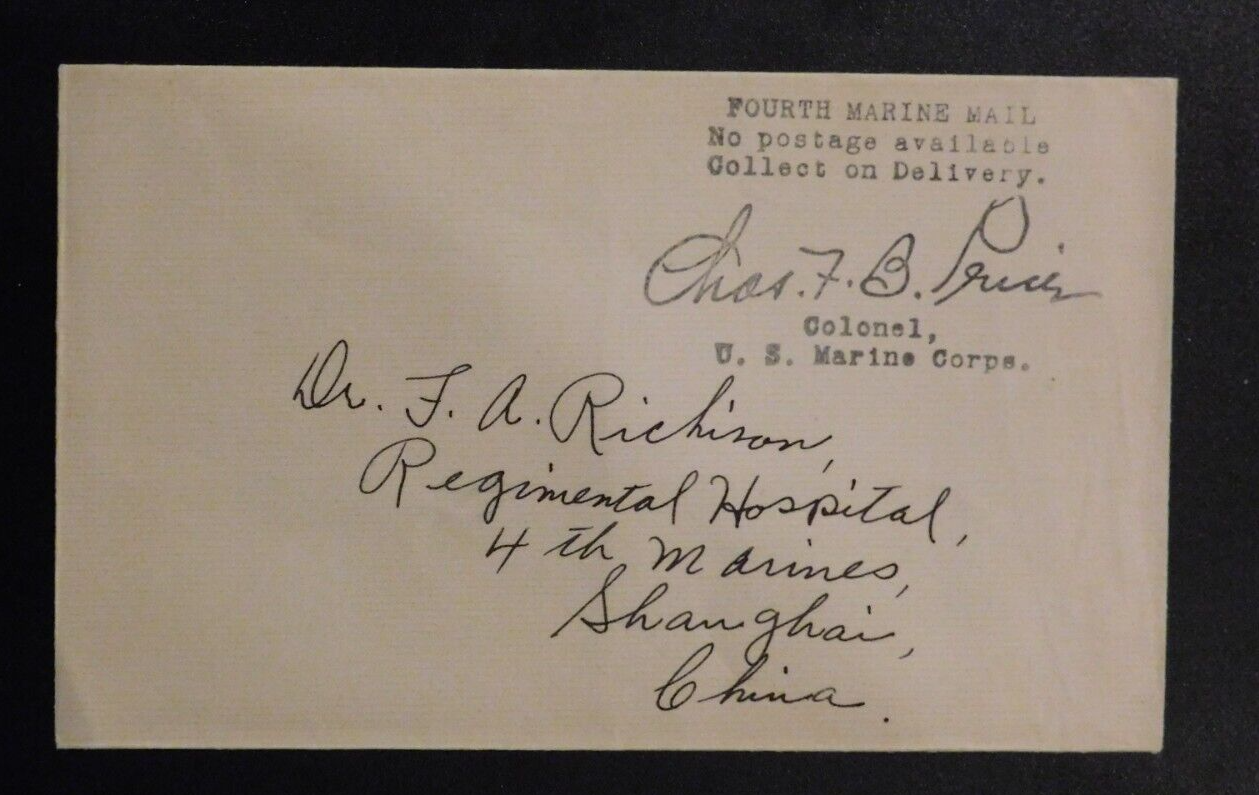 FOURTH MARINE MAIL
No postage available
Collect on Delivery.
Chas. F. B. Price
Colonel,
U. S. Marine Corps.
Dr. F. A. Richison,
Regimental Hospital,
4th Marines,
Shanghai,
China.